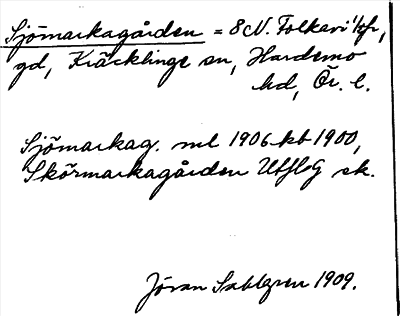 Sjömarkagården = 8 N. Folkavi 1/1 kr,
gd, Kräcklinge sn, Hardemo
hd, Ör. l.
Sjömarkag. ml 1906 kb 1900,
Skörmarkagården UtflG sk.
Jöran Sahlgren 1909.